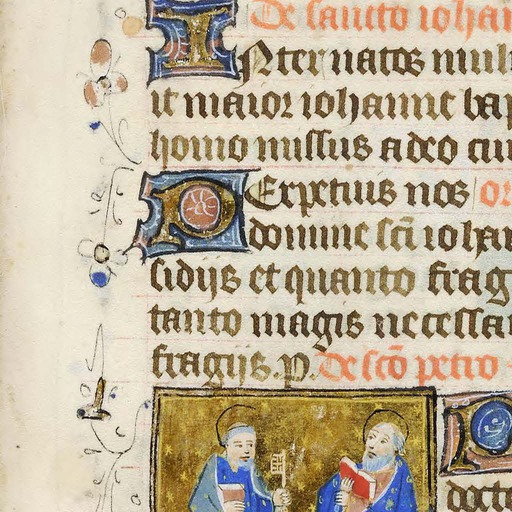 De sancto iohan
INter natos muli
it maior iohanne bap
homo missus a deo cui
PErpetuis nos or
domine scī iohan
sidijs et quanto frag
tanto magis necessar
fragiis. p. De scō petro
P
docto